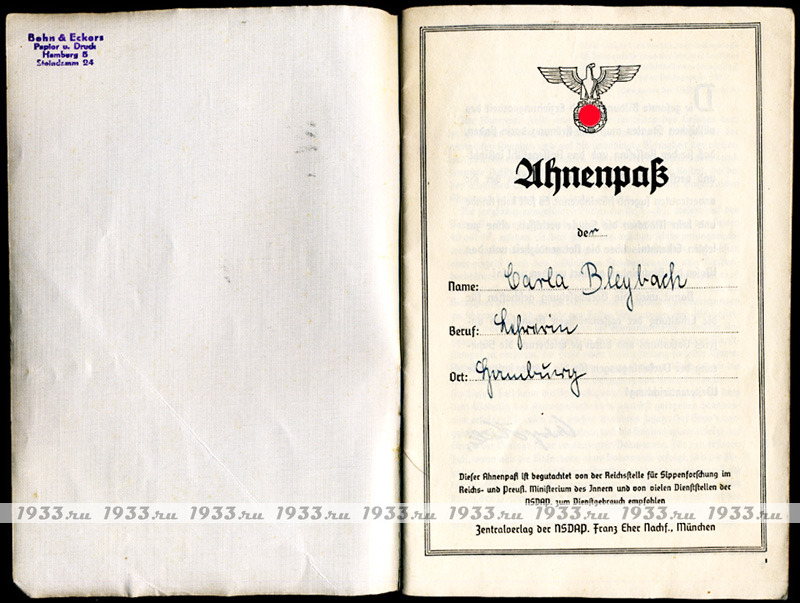 Behn & Eckers
Papier u. Druck
Hamburg 5
Steindamm 24
Ahnenpaß
der
Name: Carla Bleybach
Beruf: Lehrerin
Ort: Hamburg
Dieser Ahnenpaß ist begutachtet von der Reichsstelle für Sippenforschung im
Reichs- und Preuß. Ministerium des Innern und von vielen Dienststellen der
NSDAP. zum Dienstgebrauch empfohlen
1933.ru 1933.ru 1933.ru 1933.ru 1933.ru 1933.ru 1933.ru 1933.ru 1933.ru
Zentralverlag der NSDAP. Franz Eher Nachf., München
1